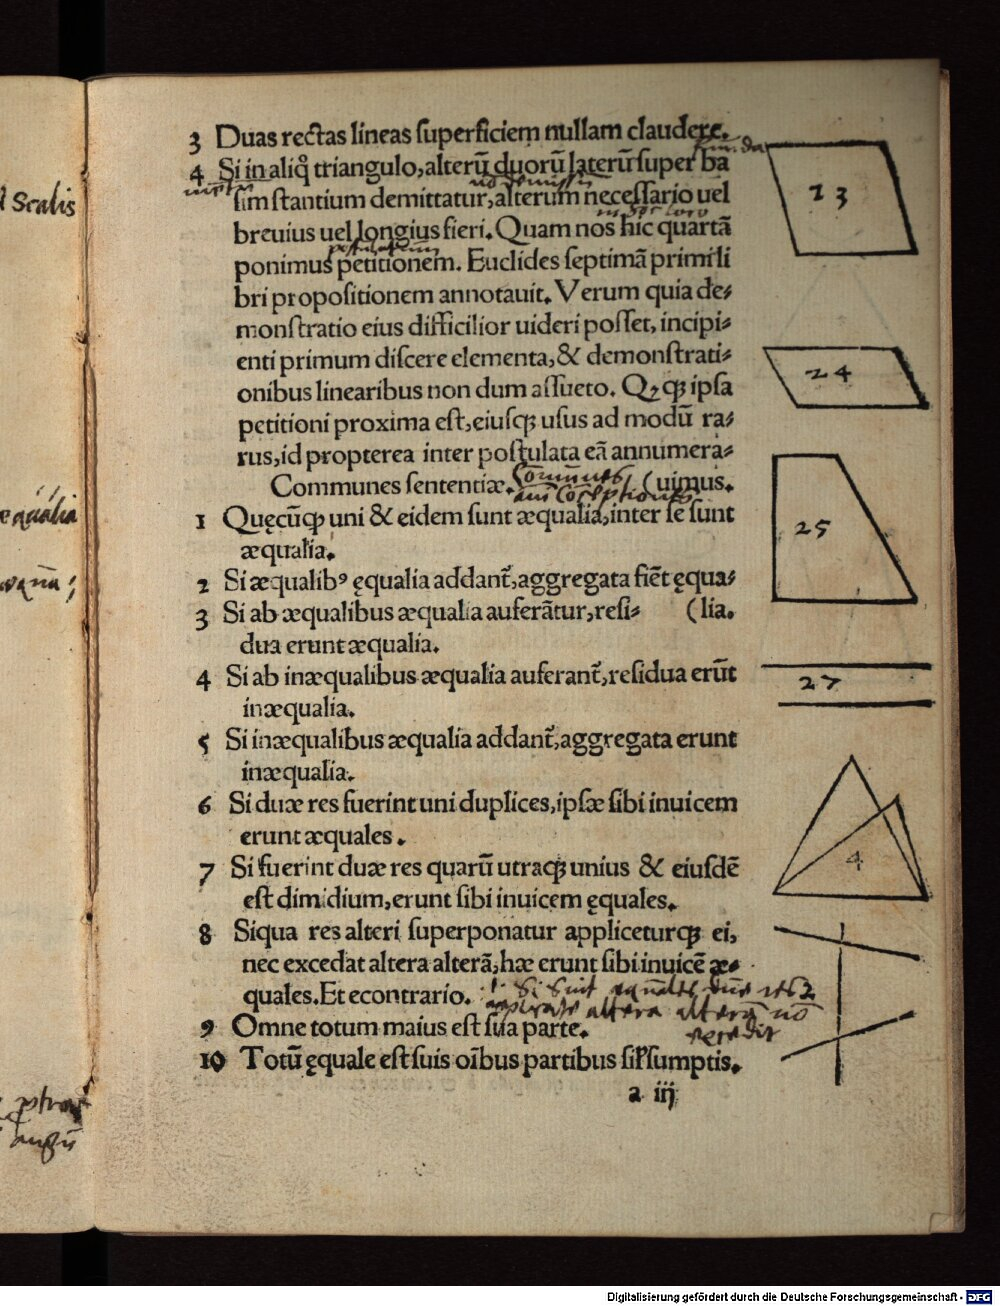 3 Duas rectas lineas superficiem nullam claudere.
4 Si in aliq̄ triangulo, alterū duorū laterū super ba
sim stantium demittatur, alterum necessario uel
breuius uel longius fieri. Quam nos hic quartā
ponimus petitionem. Euclides septimā primi li
bri propositionem annotauit. Verum quia de⸗
monstratio eius difficilior uideri posset, incipi⸗
enti primum discere elementa, & demonstrati⸗
onibus linearibus non dum assueto. Qꝫ qꝫ ipsa
petitioni proxima est, eiusqꝫ usus ad modū ra⸗
rus, id propterea inter postulata eā annumera⸗
Communes sententiæ. (uimus.
1 Quęcūqꝫ uni & eidem sunt æqualia, inter se sunt
æqualia.
2 Si æqualibꝰ ęqualia addant̃, aggregata fiēt ęqua⸗
3 Si ab æqualibus æqualia auferātur, resi⸗ (lia.
dua erunt æqualia.
4 Si ab inæqualibus æqualia auferant̃, residua erūt
inæqualia.
5 Si inæqualibus æqualia addant̃, aggregata erunt
inæqualia.
6 Si duæ res fuerint uni duplices, ipsæ sibi inuicem
erunt æquales.
7 Si fuerint duæ res quarū utraqꝫ unius & eiusdē
est dimidium, erunt sibi inuicem ęquales.
8 Siqua res alteri superponatur appliceturqꝫ ei,
nec excedat altera alterā, hæ erunt sibi inuicē æ⸗
quales. Et econtrario.
9 Omne totum maius est sua parte.
10 Totū ęquale est suis oībus partibus sil̃ sumptis.
a iij
23
24
25
27
4
Scalis
æqualia
Digitalisierung gefördert durch die Deutsche Forschungsgemeinschaft - DFG